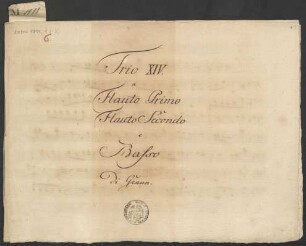 Trio XIV
a
Flauto Primo
Flauto Secondo
e
Basso
Di Graun.